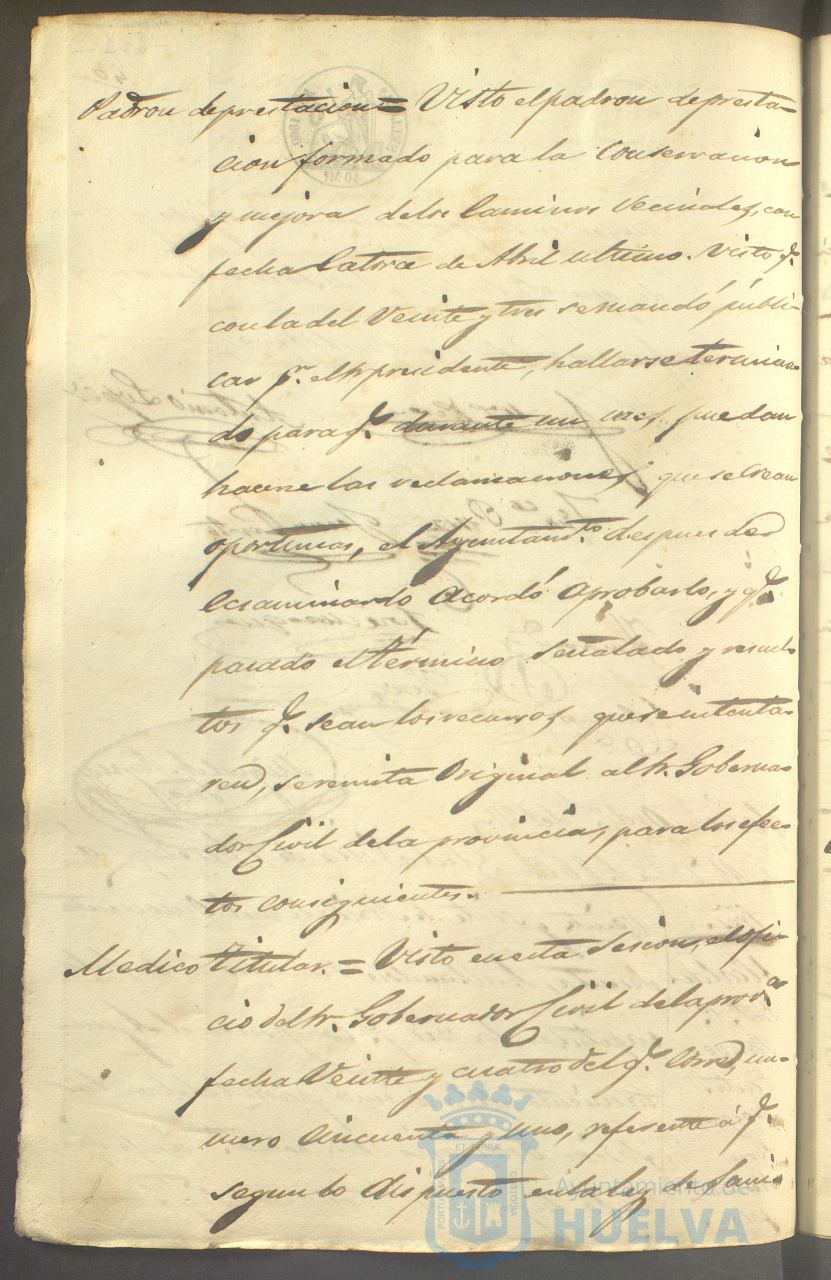 Padron de prestacion = Visto el padron de presta-
cion formado para la Conservacion
y mejora de los Caminos Vecinales, con
fecha Catorce de Abril ultimo. Visto q.e
con la del Veinte y tres se mandó publi-
car p.r el Sr. presidente, hallarse termina-
do para q.e durante un mes puedan
hacerse las reclamaciones que se crean
oportunas, el Ayuntam.to despues de
Ecsaminardo Acordó Aprobarlo, y q.e
pasado el término señalado y resuel-
tos q.e sean los recursos que se intenta-
ren, se remita Original al Sr. Goberna-
dor Civil de la provincia, para los efec-
tos consiguientes.
Medico titular. = Visto en esta Sesion, el ofi-
cio del Sr. Gobernador Civil de la prov.a
fecha Veinte y cuatro del q.e Corre, nu-
mero Cincuenta y uno, referente á q.e
segun lo dispuesto en la ley de Sani-
Ayuntamiento de
HUELVA